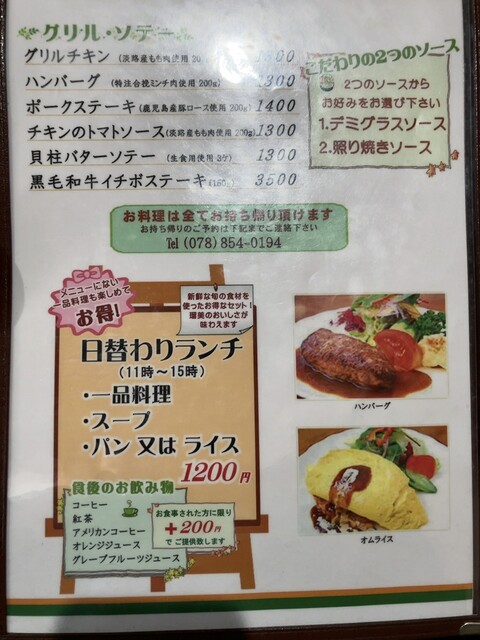 グリル・ソテー
グリルチキン (淡路産もも肉使用 1300
ハンバーグ (特注合挽ミンチ肉使用 200g) 1300
ポークステーキ (鹿児島産豚ロース使用 200g) 1400
チキンのトマトソース (淡路産もも肉使用 200g) 1300
貝柱バターソテー (生食用使用 3ケ) 1300
黒毛和牛イチボステーキ 3500
こだわりの2つのソース
2つのソースから
お好みをお選び下さい
1.デミグラスソース
2.照り焼きソース
お料理は全てお持ち帰り頂けます
お持ち帰りのご予約は下記までご連絡下さい
Tel (078) 854-0194
メニューにない
一品料理も楽しめて
お得!
新鮮な旬の食材を
使ったお得なセット!
瑠美のおいしさが
味わえます
日替わりランチ
(11時～15時)
・一品料理
・スープ
・パン 又は ライス
1200円
食後のお飲み物
コーヒー
紅茶
アメリカンコーヒー
オレンジジュース
グレープフルーツジュース
お食事された方に限り
+200円
でご提供致します
ハンバーグ
オムライス